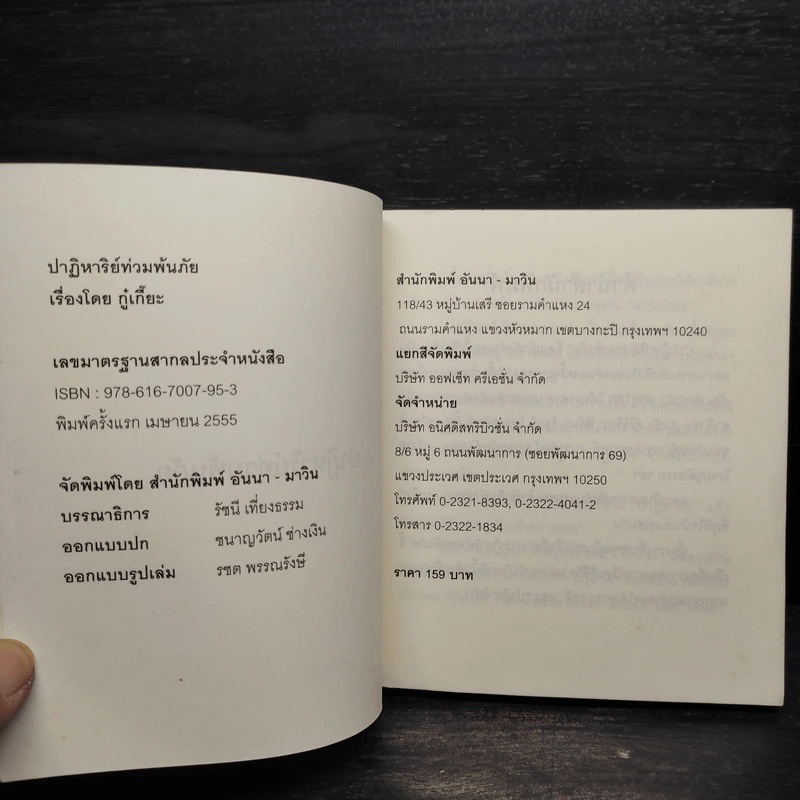 ปาฏิหาริย์ท่วมพ้นภัย
เรื่องโดย กู๋เกี๊ยะ
เลขมาตรฐานสากลประจำหนังสือ
ISBN : 978-616-7007-95-3
พิมพ์ครั้งแรก เมษายน 2555
จัดพิมพ์โดย สำนักพิมพ์ อันนา - มาวิน
บรรณาธิการ รัชนี เที่ยงธรรม
ออกแบบปก ชนาญวัตน์ ช่างเงิน
ออกแบบรูปเล่ม รชต พรรณรังษี
สำนักพิมพ์ อันนา - มาวิน
118/43 หมู่บ้านเสรี ซอยรามคำแหง 24
ถนนรามคำแหง แขวงหัวหมาก เขตบางกะปิ กรุงเทพฯ 10240
แยกสีจัดพิมพ์
บริษัท ออฟเซ็ท ครีเอชั่น จำกัด
จัดจำหน่าย
บริษัท อนิศดิสทริบิวชั่น จำกัด
8/6 หมู่ 6 ถนนพัฒนาการ (ซอยพัฒนาการ 69)
แขวงประเวศ เขตประเวศ กรุงเทพฯ 10250
โทรศัพท์ 0-2321-8393, 0-2322-4041-2
โทรสาร 0-2322-1834
ราคา 159 บาท